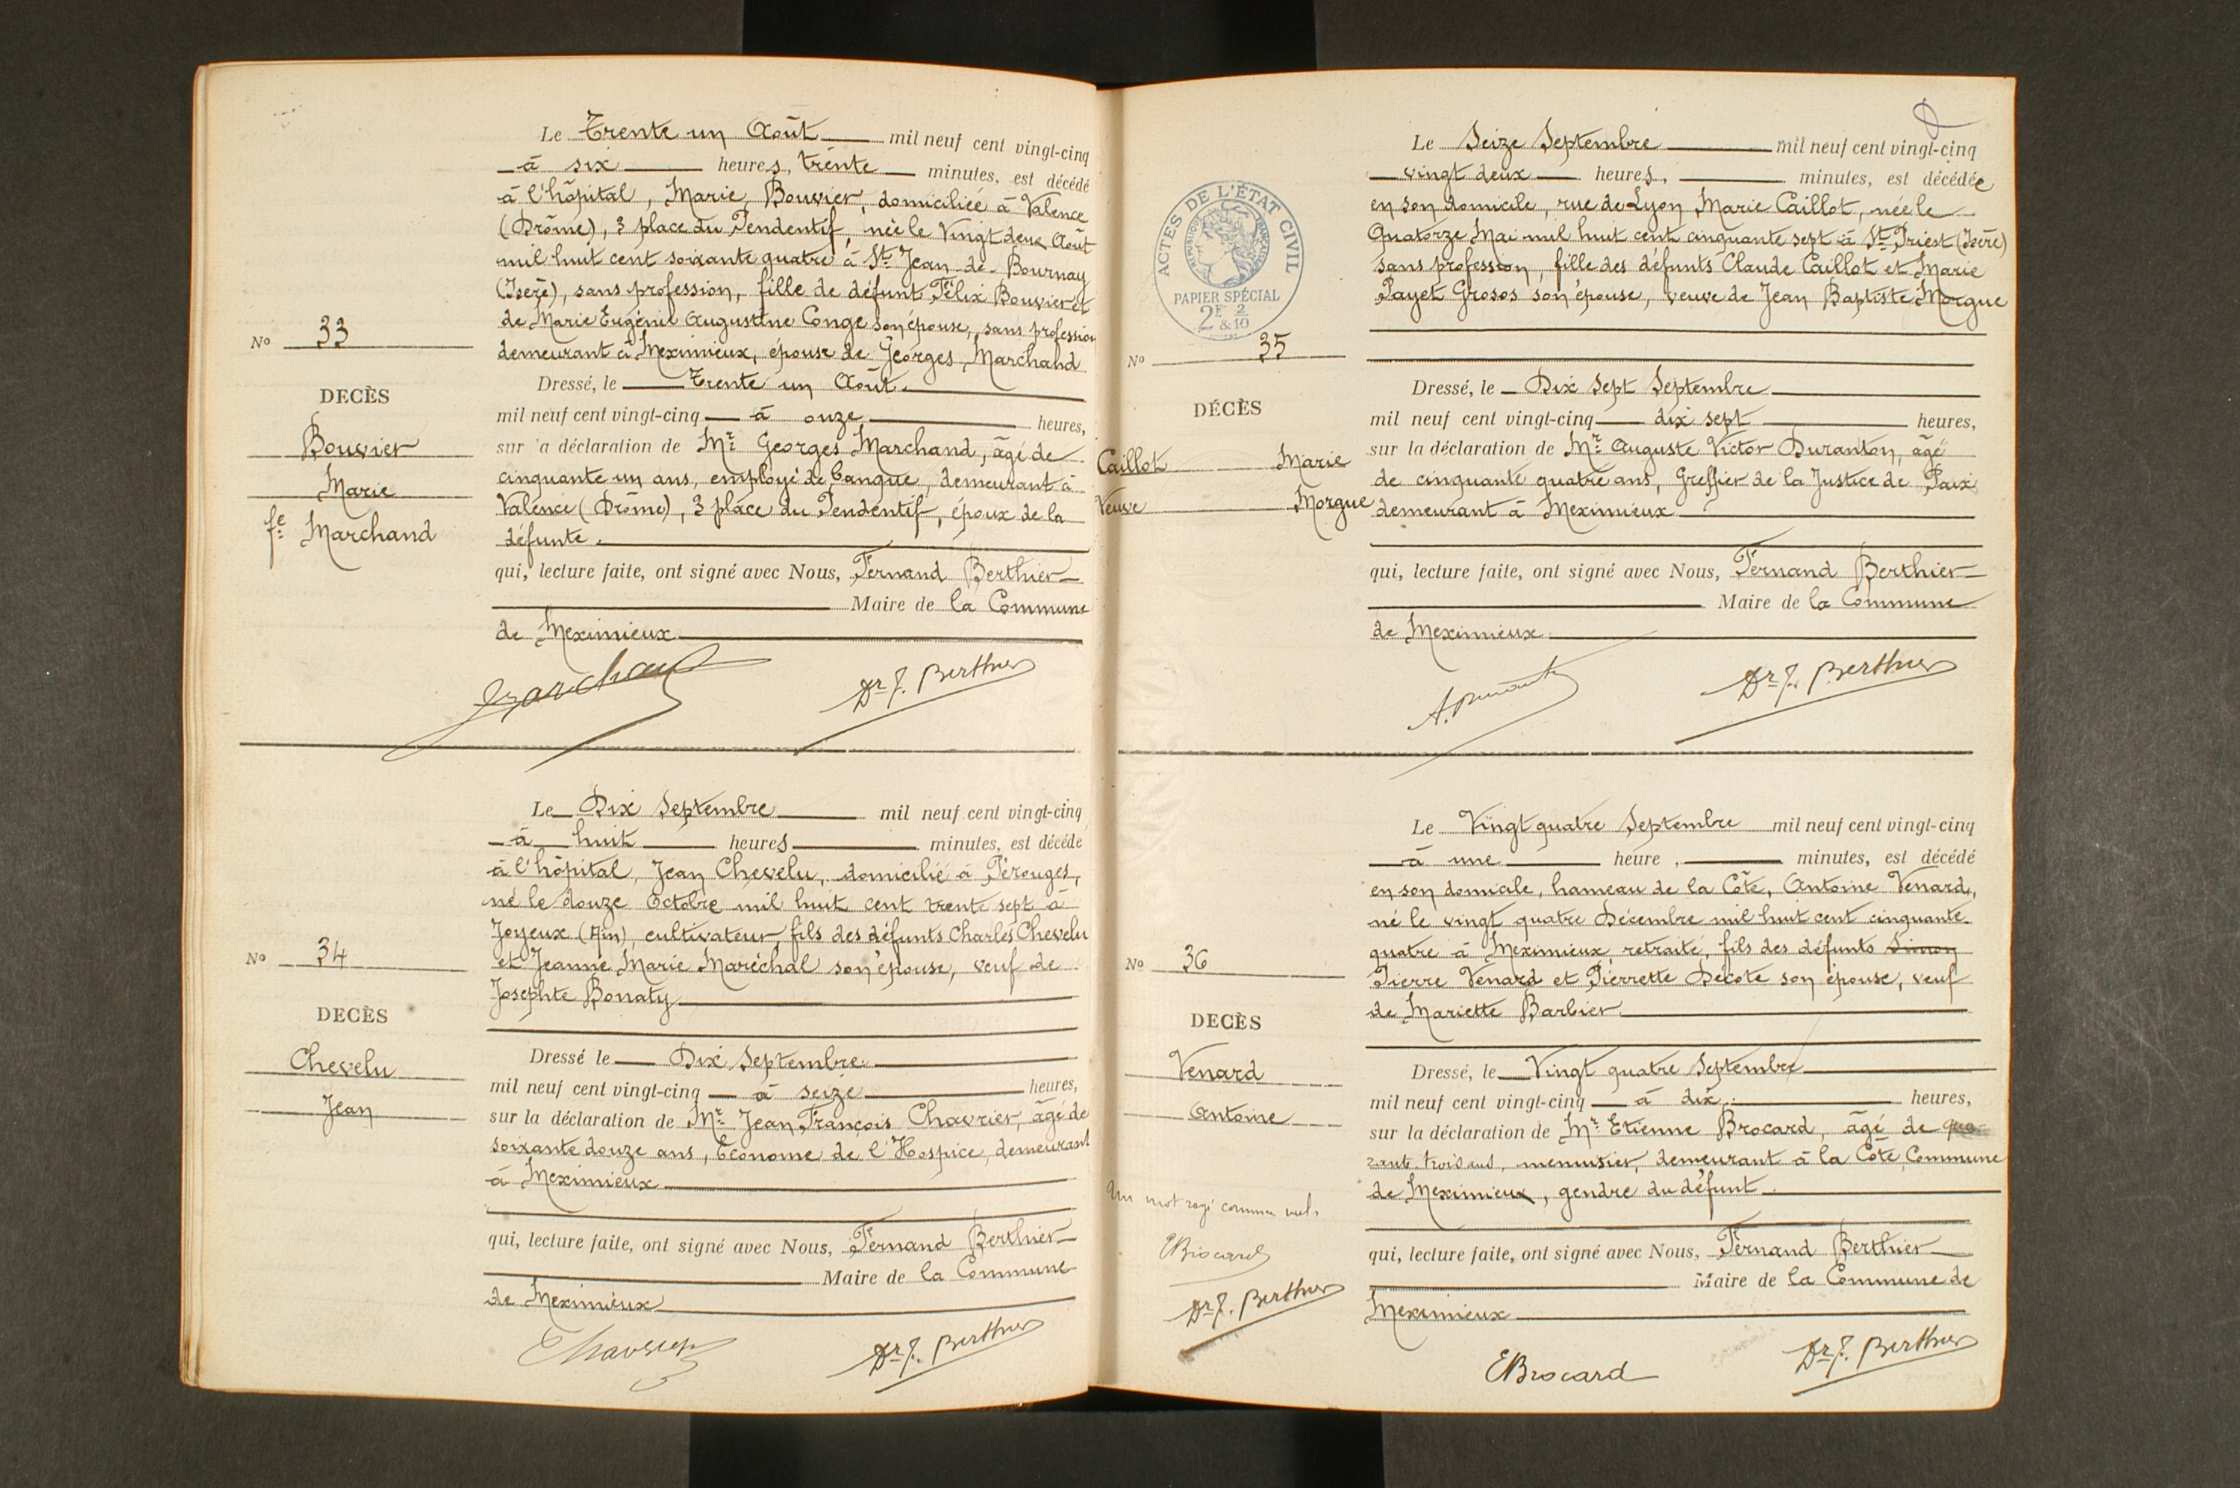 Le Trente un Août mil neuf cent vingt-cinq
à six heures, trente minutes, est décédé
à l'hôpital, Marie, Bouvier, domiciliée à Valence
(Drôme), 3 place du Pendentif, née le Vingt deux Août
mil huit cent soixante quatre à St. Jean-de-Bournay
(Isère), sans profession, fille de défunt Félix Bouvier et
de Marie Eugénie Augustine Conge son épouse, sans profession
demeurant à Meximieux, épouse de Georges Marchand
No 33
DECÈS
Bouvier
Marie
fe Marchand
Dressé, le Trente un Août.
mil neuf cent vingt-cinq à onze heures,
sur a déclaration de Mr. Georges Marchand, âgé de
cinquante un ans, employé de banque, demeurant à
Valence (Drôme), 3 place du Pendentif, époux de la
défunte.
qui, lecture faite, ont signé avec Nous, Fernand Berthier
Maire de la Commune
de Meximieux
Marchand Dr F. Berthier
Le Dix Septembre mil neuf cent vingt-cinq
à huit heures minutes, est décédé
à l'hôpital, Jean Chevelu, domicilié à Pérouges,
né le douze Octobre mil huit cent trente sept à
Joyeux (Ain), cultivateur, fils des défunts Charles Chevelu
et Jeanne Marie Maréchal son épouse, veuf de
Josephte Bonnaty
No 34
DECÈS
Chevelu
Jean
Dressé le Dix Septembre
mil neuf cent vingt-cinq à seize heures,
sur la déclaration de Mr. Jean François Chavrier, âgé de
soixante douze ans, Econome de l'Hospice, demeurant
à Meximieux
qui, lecture faite, ont signé avec Nous, Fernand Berthier
Maire de la Commune
de Meximieux
Chavrier Dr F. Berthier
ACTES DE L'ÉTAT CIVIL
PAPIER SPÉCIAL
2F 2
& 10
Le Seize Septembre mil neuf cent vingt-cinq
vingt deux heures, minutes, est décédée
en son domicile, rue de Lyon Marie Caillot, née le
Quatorze Mai mil huit cent cinquante sept à St. Priest (Isère)
sans profession, fille des défunts Claude Caillot et Marie
Payet Grosos son épouse, veuve de Jean Baptiste Morgue
No 35
DÉCÈS
Caillot Marie
Veuve Morgue
Dressé, le Dix Sept Septembre
mil neuf cent vingt-cinq dix sept heures,
sur la déclaration de Mr. Auguste Victor Duranton, âgé
de cinquante quatre ans, Greffier de la Justice de Paix
demeurant à Meximieux
qui, lecture faite, ont signé avec Nous, Fernand Berthier
Maire de la Commune
de Meximieux
Dr F. Berthier
Le Vingt quatre Septembre mil neuf cent vingt-cinq
à une heure, minutes, est décédé
en son domicile, hameau de la Côte, Antoine Venard,
né le vingt quatre Décembre mil huit cent cinquante
quatre à Meximieux, retraité, fils des défunts Simon
Pierre Venard et Pierrette Decote son épouse, veuf
de Mariette Barbier
No 36
DECÈS
Venard
Antoine
Dressé, le Vingt quatre Septembre
mil neuf cent vingt-cinq à dix heures,
sur la déclaration de Mr. Etienne Brocard, âgé de qua-
rante trois ans, menuisier, demeurant à la Côte, Commune
de Meximieux, gendre du défunt
Un mot rayé comme nul.
EBrocard
Dr F. Berthier
qui, lecture faite, ont signé avec Nous, Fernand Berthier
Maire de la Commune de
Meximieux
EBrocard Dr F. Berthier